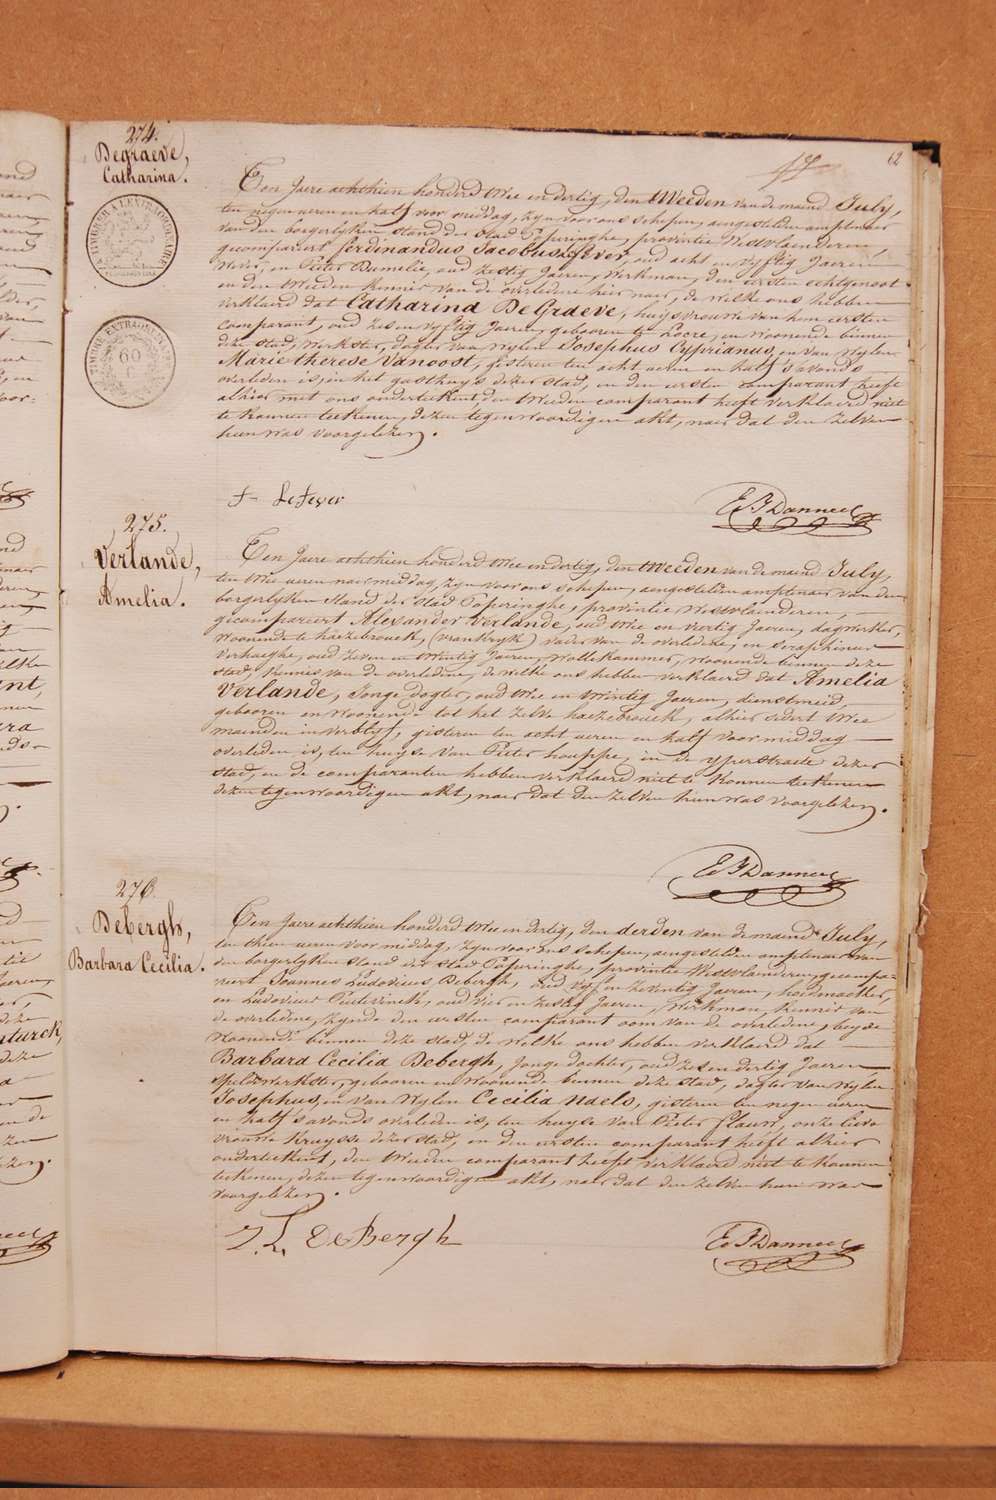 62
274.
Degraeve,
Catharina.
Een Jaere achthien honderd twee en dertig, den tweeden van de maend July,
ten negen ueren en half voor middag, zyn voor ons schepen, aengestelden amptenaer
van den borgerlyken stand der stad Poperinghe, provintie Westvlaenderen,
gecompareert ferdinandus Jacobus Lefever, oud acht en vyftig Jaeren
wever, en Pieter Dumelie, oud zestig Jaeren, werkman, den eersten echtgenoot
en den tweeden kennis van de overledene hier naer, de welke ons hebben
verklaerd dat Catharina DeGraeve, huysvrouwe van hem eersten
comparant, oud zes en vyftig Jaeren, gebooren te Locre, en woonende binnen
deze stad, werkster, dogter van wylen Josephus Cyprianus, en van wylen
Marie therese Vanoost, gisteren ten acht ueren en half s'avonds
overleden is, in het gasthuys dezer stad, en den eersten comparant heeft
alhier met ons onderteekent, den tweeden comparant heeft verklaerd niet
te konnen teekenen, dezen tegenwoordigen akt, naer dat den zelven
hun was voorgelezen.
F- LeFever
E J Danneel
275.
Verlande,
Amelia.
Een Jaere achthien honderd twee en dertig, den tweeden van de maend July,
ten twee ueren naer middag, zyn voor ons schepen, aengestelden amptenaer van den
borgerlyken stand der stad Poperinghe, provintie Westvlaenderen,
gecompareert Alexander Verlande, oud twee en viertig Jaeren, dagwerker,
woonende te haezebrouck, (vrankryk) vader van de overledene, en seraphinus
Verhaeghe, oud zeven en twintig Jaeren, wollekammer, woonende binnen deze
stad, kennis van de overledene, de welke ons hebben verklaerd dat Amelia
Verlande, Jonge dogter, oud twee en twintig Jaeren, dienstmeid,
gebooren en woonende tot het zelve haezebrouck, alhier sedert twee
maenden in verblyf, gisteren ten acht ueren en half voor middag
overleden is, ten huyse van Pieter houppe, in de yperstraete dezer
stad, en de comparanten hebben verklaerd niet te konnen teekenen
dezen tegenwoordigen akt, naer dat den zelven hun was voorgelezen.
E J Danneel
276.
Debergh,
Barbara Cecilia.
Een Jaere achthien honderd twee en dertig, den derden van de maend July,
ten thien ueren voor middag, zyn voor ons schepen, aengestelden amptenaer van
den borgerlyken stand der stad Poperinghe, provintie Westvlaenderen, gecompa-
reert Joannes Ludovicus Debergh, oud vyf en zeventig Jaeren, hoedmaeker,
en Ludovicus oud vier en zestig Jaeren, werkman, kennis van
de overledene, zynde den eersten comparant oom van de overledene, beyde
woonende binnen deze stad, de welke ons hebben verklaerd dat
Barbara Cecilia Debergh, Jonge dochter, oud zes en dertig Jaeren,
speldewerkster, gebooren en woonende binnen deze stad, dogter van wylen
Josephus, en van wylen Cecilia Naels, gisteren ten negen ueren
en half s'avonds overleden is, ten huyse van Pieter flauw, onze lieve
vrouwe kruysse dezer stad, en den eersten comparant heeft alhier
onderteekent, den tweeden comparant heeft verklaerd niet te konnen
teekenen, dezen tegenwoordigen akt, naer dat den zelven hun was
voorgelezen.
J. L. DeBergh
E J Danneel